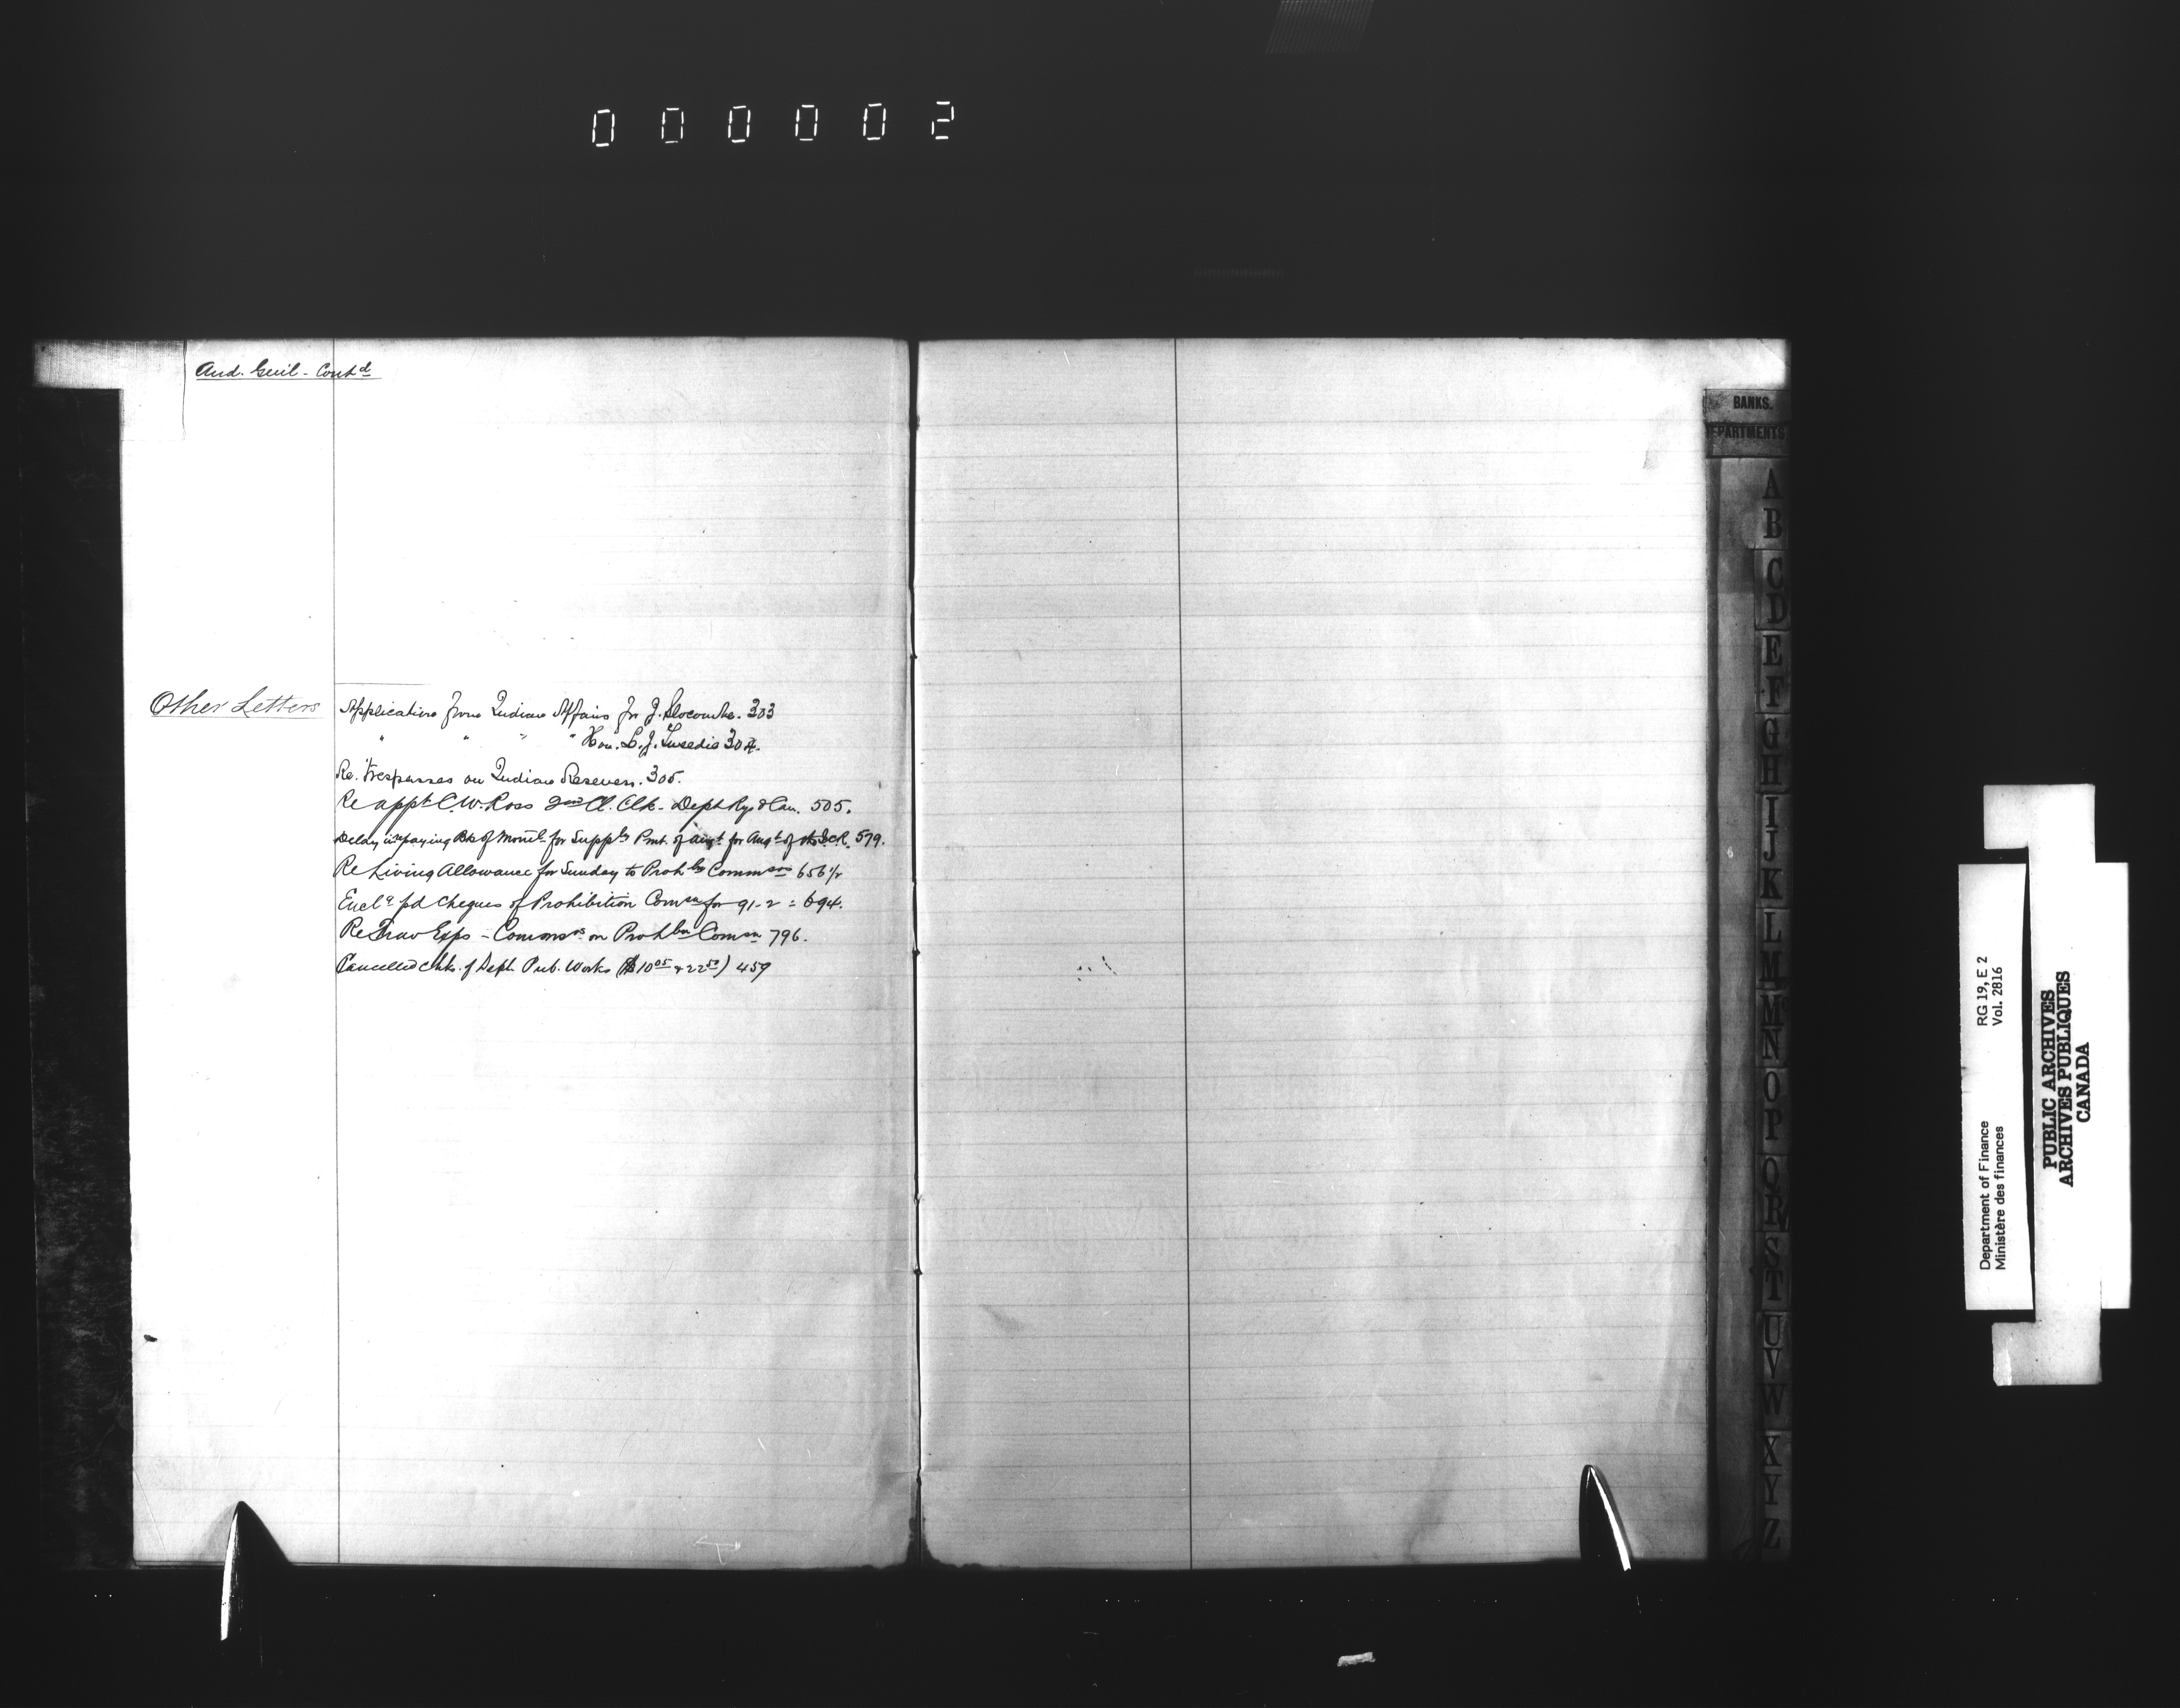 000002
Aud. Genl - Contd
BANKS.
DEPARTMENTS
Other Letters
Application from Indian Affairs for J. Slocombe. 303
" " " " Hon. L. J. Tweedie 304.
Re. Trespasses on Indian Reserves. 305.
Re appt C. W. Ross 2nd Cl. Clk - Dept Rys & Can. 505.
Delay in paying Bk of Montl for Supply Pmt. of for Augt of 579.
Re Living Allowance for Sunday to Prohbn Commsrs 656 1/2
Encl pd Cheques of Prohibition Comsn for 91-2 = 694.
Re Trav Exps - Commsrs on Prohbn Comsn 796.
Cancelled chks. of Dept. Pub. Works ($10 05 + 22 50) 459
A
B
C
D
E
F
G
H
I
J
K
L
M
M
N
O
P
Q
R
S
T
U
V
W
X
Y
Z
Department of Finance RG 19, E 2
Ministère des finances Vol. 2816
PUBLIC ARCHIVES
ARCHIVES PUBLIQUES
CANADA